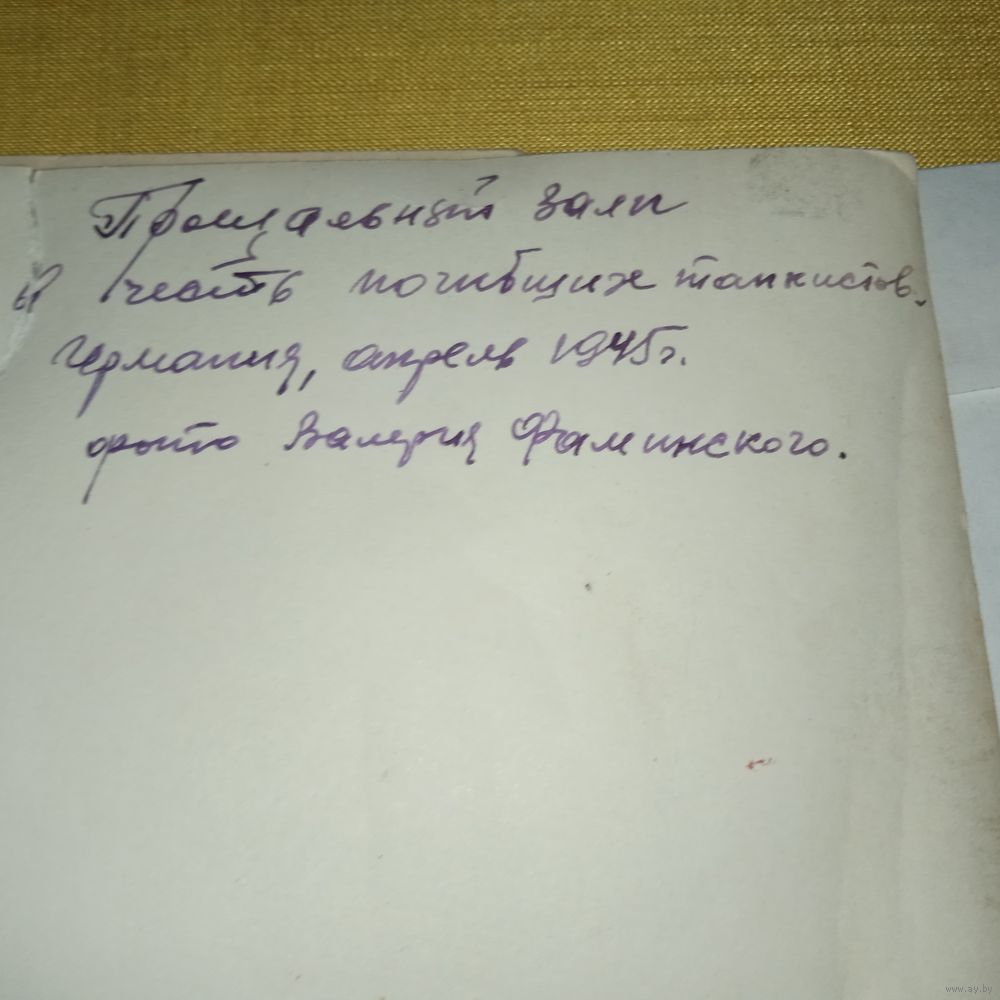 Прощальный залп
в честь погибших танкистов.
Германия, апрель 1945г.
фото Валерия Фаминского.
www.ay.by